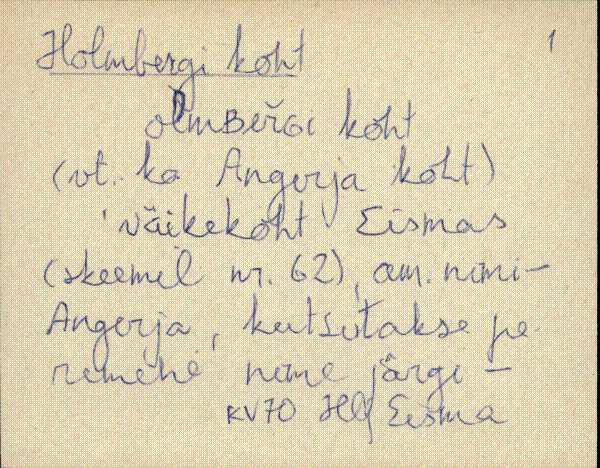 Holmbergi koht 1
olmBeřGi koht
(vt. ka Angerja koht)
'väikekoht Eismas
(skeemil nr. 62), am. nimi-
Angerja, kutsutakse pe-
remehe nime järgi –
KV70 Hlj Eisma